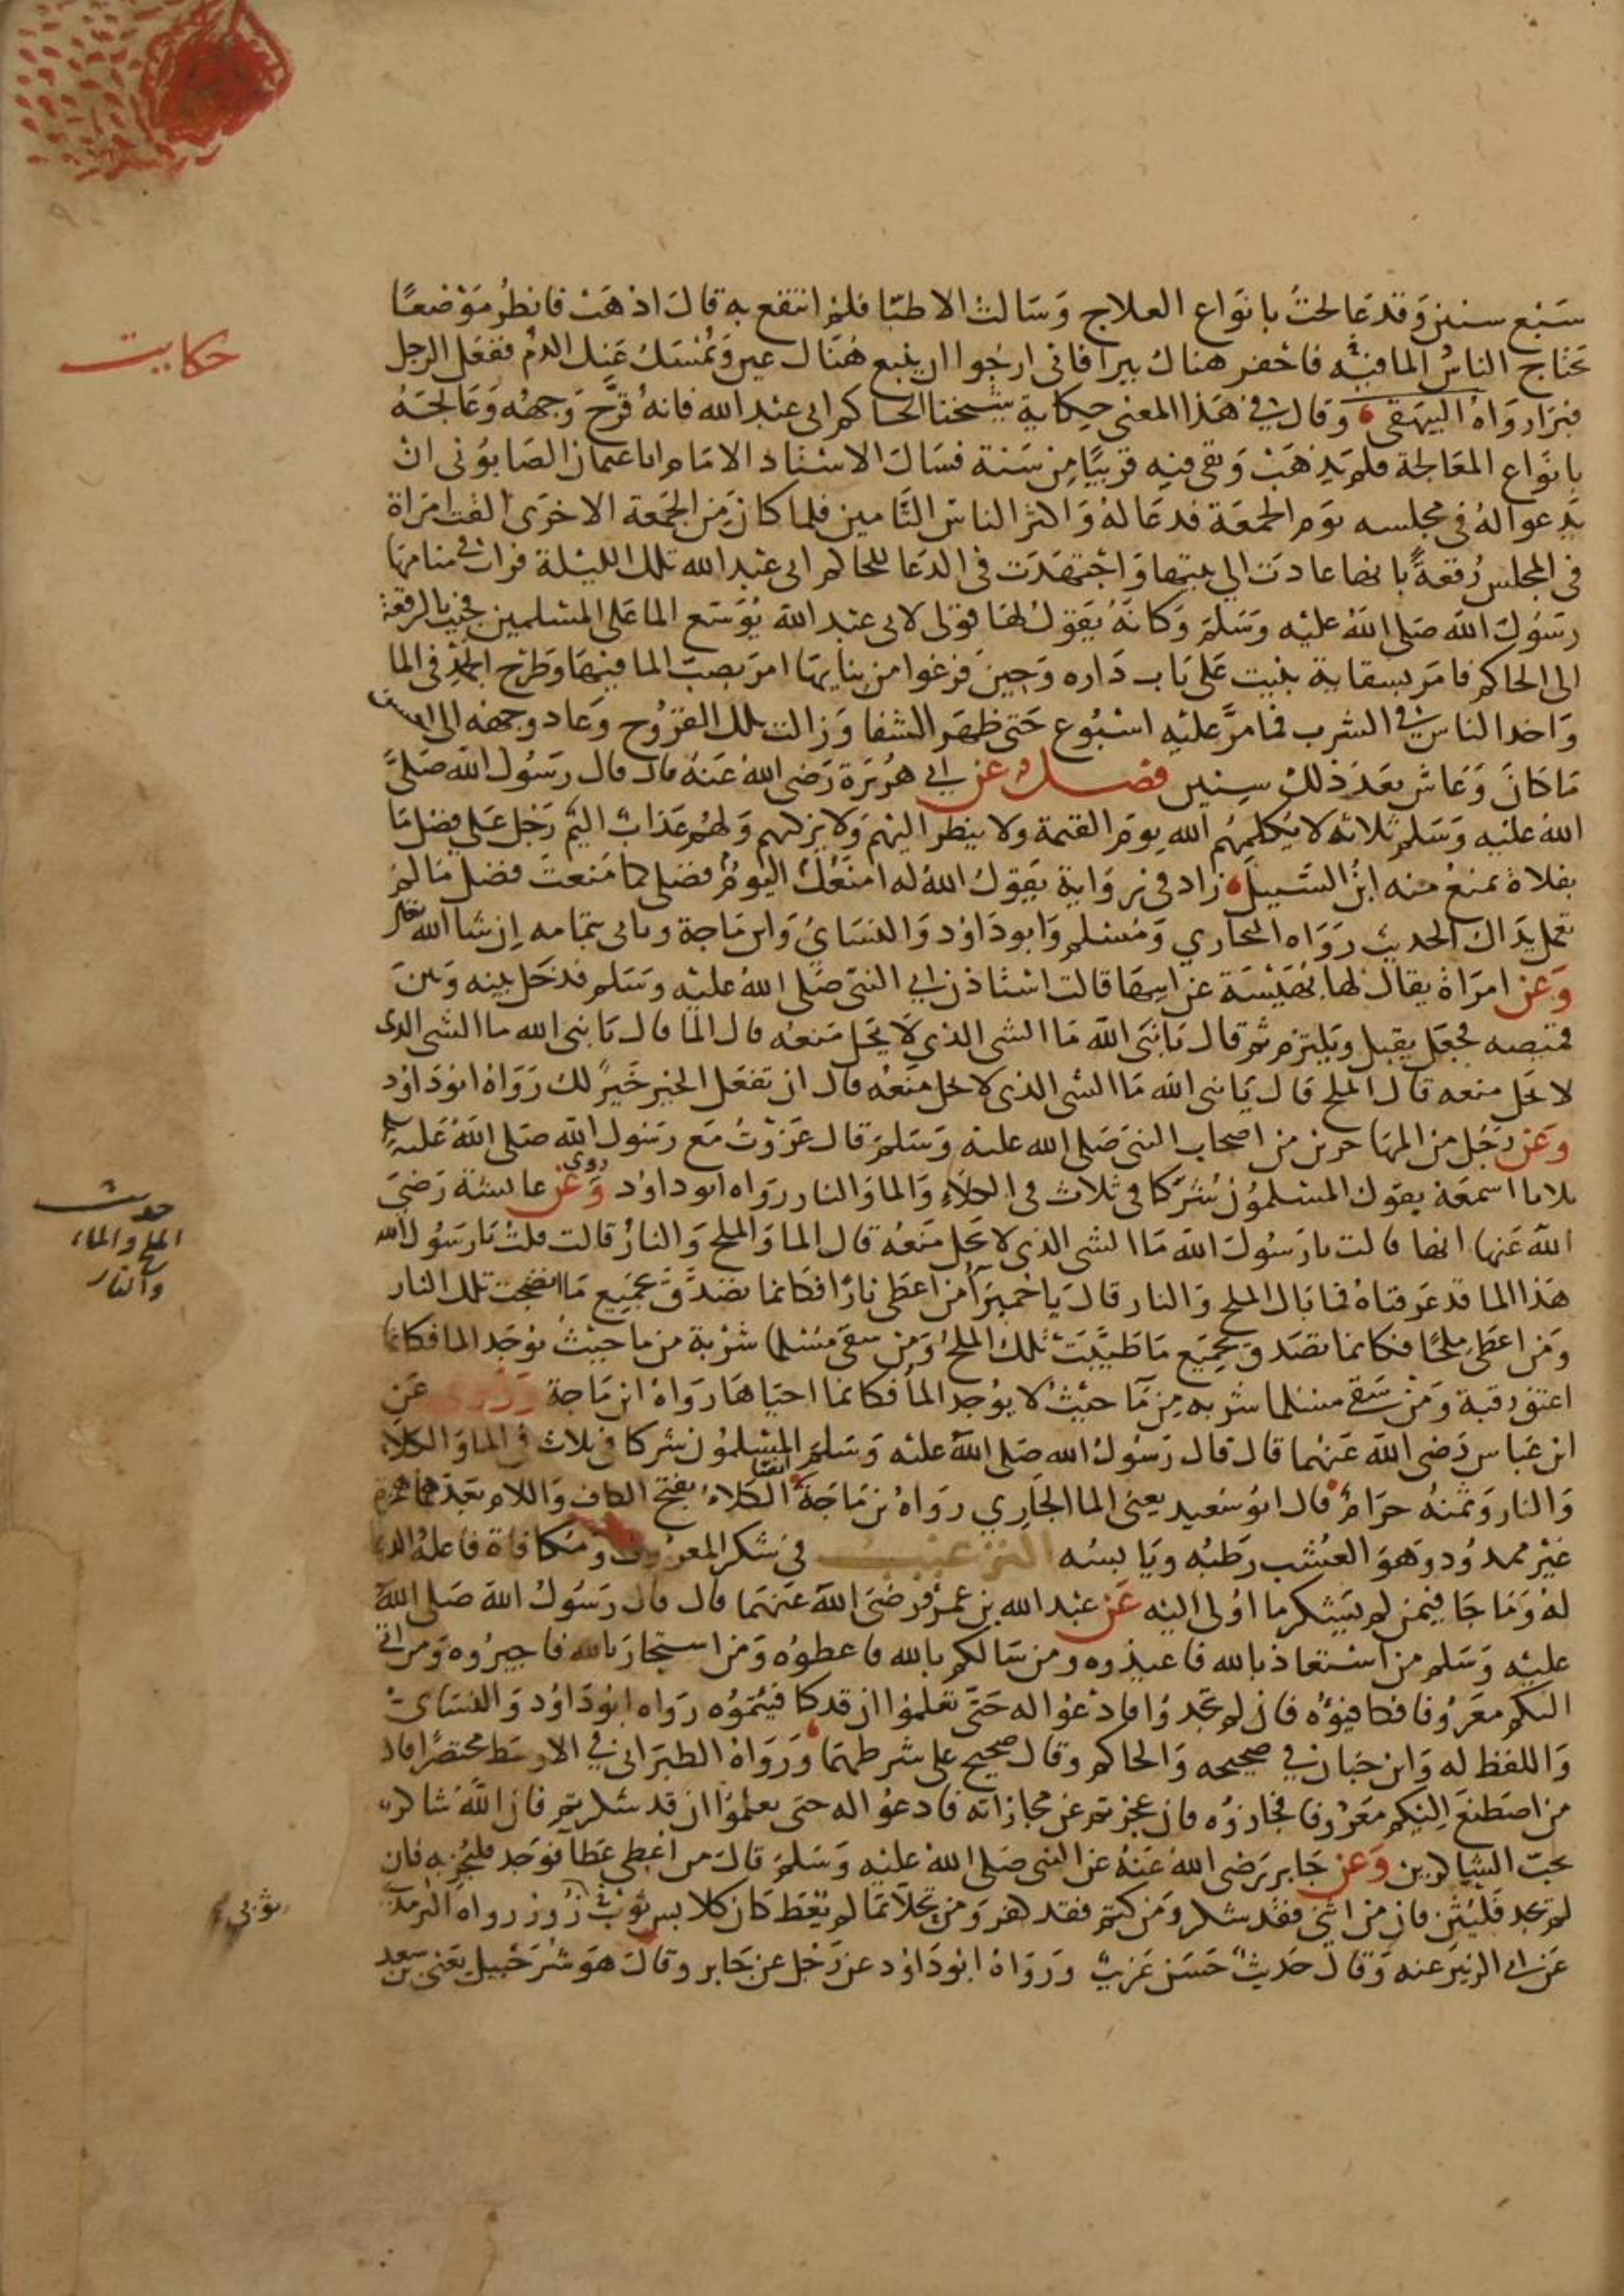 سبع سنين وقد عالجت بانواع العلاج وسالت الاطبا فلم انتفع به قال اذهب فانظر موضعا
يحتاج الناس الما فيه فاحفر هناك بيرا فاني ارجوا ان ينبع هناك عين ويمسك عنك الدم ففعل الرجل
فبرا رواه البيهقي وقال في هذا المعنى حكاية شيخنا الحاكم ابي عبد الله فانه قرح وجهه وعالجه
بانواع المعالجة فلم يذهب وبقي فيه قريبا من سنة فسال الاستاد الامام ابا عثمان الصابوني ان
يدعوا له في مجلسه يوم الجمعة فدعا له واكثر الناس التامين فلما كان من الجمعة الاخرى القت امراة
في المجلس رقعة بانها عادت الي بيتها واجتهدت في الدعا للحاكم ابي عبد الله تلك الليلة فرات في منامها
رسول الله صلى الله عليه وسلم وكانه يقول لها قولي لابي عبد الله يوسع الما على المسلمين فجيت بالرقعة
الى الحاكم فامر بسقاية بنيت على باب داره وحين فرغوا من بنايها امر بصب الما فيها وطرح الجمد في الما
واخد الناس في الشرب فما مر عليه اسبوع حتى ظهر الشفا وزالت تلك القروح وعاد وجهه الى احسن
ما كان وعاش بعد ذلك سنين فصل عن ابي هريرة رضي الله عنه قال قال رسول الله صلى
الله عليه وسلم ثلاثة لا يكلمهم الله يوم القيمة ولا ينظر اليهم ولا يزكيهم ولهم عذاب اليم رجل على فضل ما
بفلاة يمنع منه ابن السبيل زاد في رواية يقول الله له امنعك اليوم فضلي كما منعت فضل ما لم
تعمل يداك الحديث رواه البخاري ومسلم وابو داود والنساي وابن ماجة وياتي بتمامه ان شا الله تعالى
وعن امراة يقال لها بهيسة عن ابيها قالت استاذن ابي النبي صلى الله عليه وسلم فدخل بينه وبين
قميصه فجعل يقبل ويلتزم ثم قال يا نبي الله ما الشي الذي لا يحل منعه قال الما قال يا نبي الله ما الشي الذي
لا يحل منعه قال الملح قال يا نبي الله ما الشي الذي لا يحل منعه قال ان تفعل الخير خير لك رواه ابو داود
وعن رجل من المهاجرين من اصحاب النبي صلى الله عليه وسلم قال غزوت مع رسول الله صلى الله عليه وسلم
ثلاثا اسمعه يقول المسلمون شركا في ثلاث في الكلاء والما والنار رواه ابو داود وروي عن عايشة رضي
الله عنها انها قالت يا رسول الله ما الشي الذي لا يحل منعه قال الما والملح والنار قالت قلت يا رسول الله
هذا الما قد عرفناه فما بال الملح والنار قال يا حميرا من اعطى نارا فكانما تصدق بجميع ما انضجت تلك النار
ومن اعطى ملحا فكانما تصدق بجميع ما طيبت تلك الملح ومن سقى مسلما شربة من ما حيث يوجد الما فكانما
اعتق رقبة ومن سقى مسلما شربه من ما حيث لا يوجد الما فكانما احياها رواه ابن ماجة وروي عن
ابن عباس رضي الله عنهما قال قال رسول الله صلى الله عليه وسلم المسلمون شركا في ثلاث في الما والكلاء
والنار وثمنه حرام قال ابو سعيد يعني الما الجاري رواه بن ماجة ايضا الكلاء بفتح الكاف واللام بعدهما همزة
غير ممدود وهو العشب رطبه ويابسه الترغيب في شكر المعروف ومكافاة فاعله والدعا
له وما جا فيمن لم يشكر ما اولي اليه عن عبد الله بن عمر رضي الله عنهما قال قال رسول الله صلى الله
عليه وسلم من استعاذ بالله فاعيذوه ومن سالكم بالله فاعطوه ومن استجار بالله فاجيروه ومن اتى
اليكم معروفا فكافيوه فان لم تجدوا فادعوا له حتى تعلموا ان قد كافيتموه رواه ابو داود والنساي
واللفظ له وابن حبان في صحيحه والحاكم وقال صحيح على شرطهما ورواه الطبراني في الاوسط مختصرا قال
من اصطنع اليكم معروفا فجازوه فان عجزتم عن مجازاته فادعوا له حتى تعلموا ان قد شكرتم فان الله شاكر
يحب الشاكرين وعن جابر رضي الله عنه عن النبي صلى الله عليه وسلم قال من اعطي عطا فوجد فليجز به فان
لم يجد فليثن فان من اثنى فقد شكر ومن كتم فقد كفر ومن تحلا بما لم يعط كان كلابس ثوب زور رواه الترمذي
عن ابي الزبير عنه وقال حديث حسن غريب ورواه ابو داود عن رجل عن جابر وقال هو شرحبيل يعني بن سعد
حكايت
حديث
الملح والماء
والنار
ثوبي